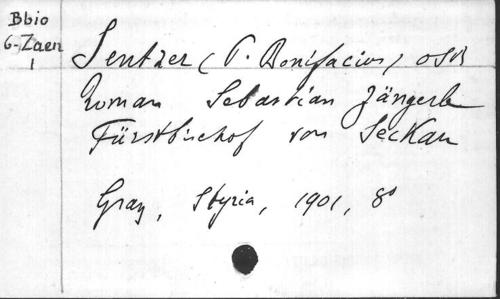 Bbio
6-Zaen
1
Sentzer (P. Bonifacius) OSB
Roman Sebastian Zängerle
Fürstbischof von Seckau
Graz, Styria, 1901, 8°